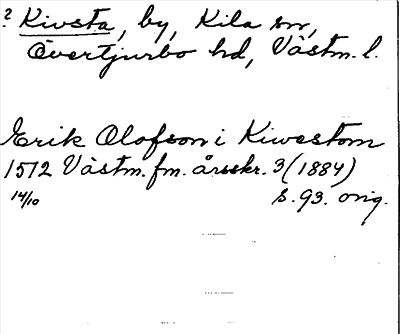 ? Kivsta, by, Kila sn,
Övertjurbo hd, Västm. l.
Erik Olofson i Kiwestom
1512 Västm. fm. årsskr. 3 (1884)
14/10 s. 93. orig.